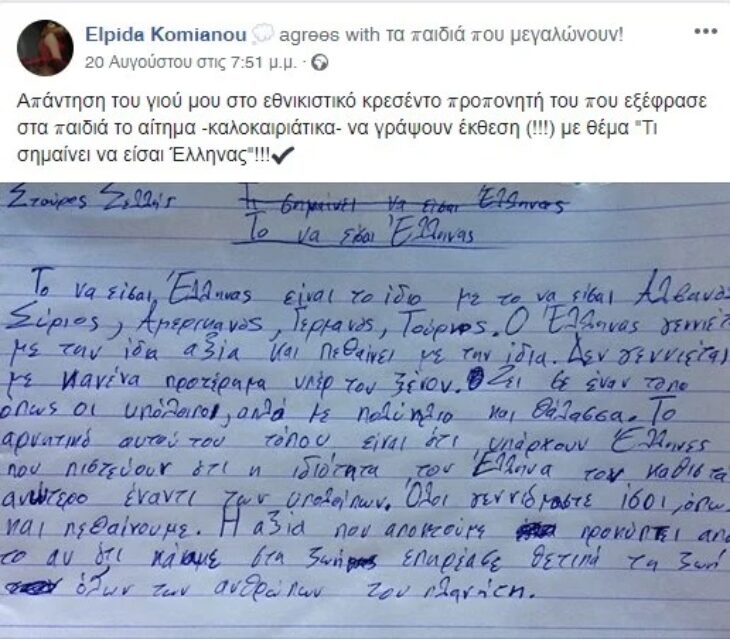 Elpida Komianou 💭 agrees with τα παιδιά που μεγαλώνουν!
20 Αυγούστου στις 7:51 μ.μ. ·
Απάντηση του γιού μου στο εθνικιστικό κρεσέντο προπονητή του που εξέφρασε
στα παιδιά το αίτημα -καλοκαιριάτικα- να γράψουν έκθεση (!!!) με θέμα "Τι
σημαίνει να είσαι Έλληνας"!!!✔
Σταύρος Σελλής Τι σημαίνει να είσαι Έλληνας
Το να είσαι Έλληνας
Το να είσαι Έλληνας είναι το ίδιο με το να είσαι Αλβανός
Σύριος, Αμερικανός, Γερμανός, Τούρκος. Ο Έλληνας γεννιέτ
με την ίδια αξία και πεθαίνει με την ίδια. Δεν γεννιέται
με κανένα προτέρημα υπέρ του ξένου. Ζει σε έναν τόπο
όπως οι υπόλοιποι, απλά με πολύ ήλιο και θάλασσα. Το
αρνητικό αυτού του τόπου είναι ότι υπάρχουν Έλληνες
που πιστεύουν ότι η ιδιότητα του Έλληνα τον καθιστά
ανώτερο έναντι των υπολοίπων. Όλοι γεννιόμαστε ίσοι, όπω
και πεθαίνουμε. Η αξία που αποκτούμε προκύπτει απο
το αν ότι κάναμε στη ζωή μας επηρέασε θετικά τη ζωή
όλων των ανθρώπων του πλανήτη.